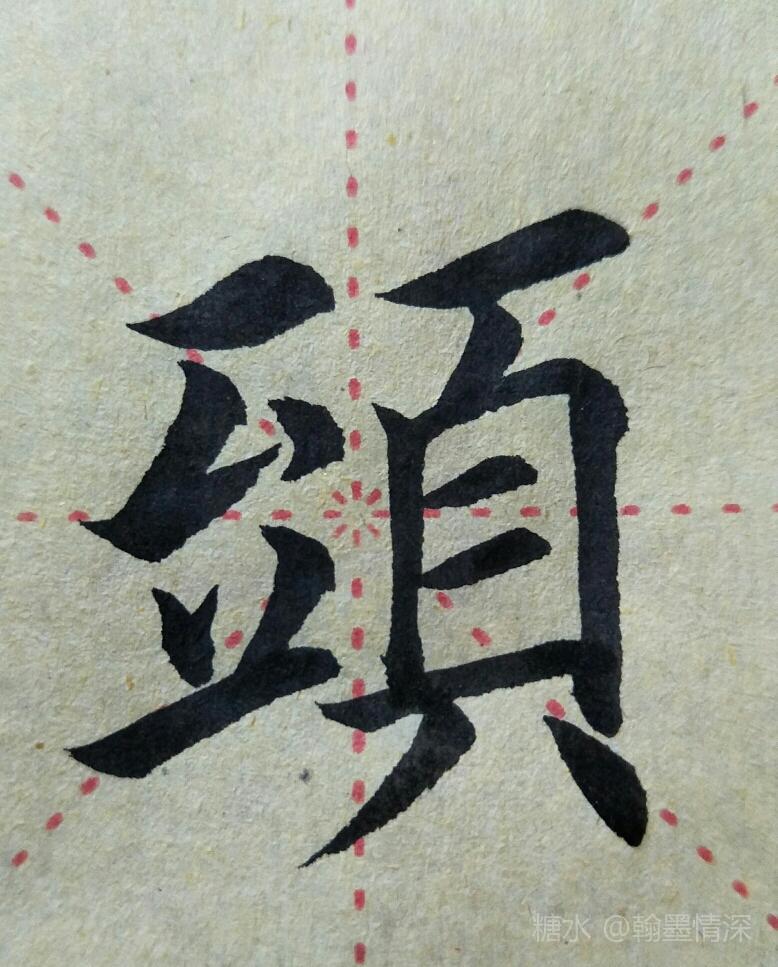 頭
糖水 @翰墨情深